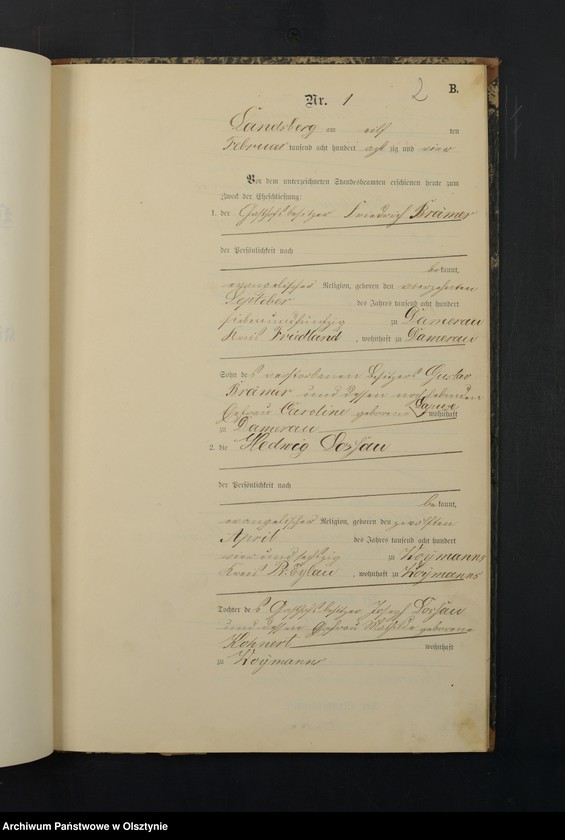 2
B.
Nr. 1
Landsberg am elf ten
Februar tausend acht hundert acht zig und vier
Vor dem unterzeichneten Standesbeamten erschienen heute zum
Zweck der Eheschließung:
1. der Gasthofbesitzer Friedrich Krämer
der Persönlichkeit nach
bekannt,
evangelischer Religion, geboren den vierzehnten
September des Jahres tausend acht hundert
siebenundfünfzig zu Damerau
Kreis Friedland, wohnhaft zu Damerau
Sohn des verstorbenen Besitzers Gustav
Krämer und dessen noch lebenden
Ehefrau Caroline geborene wohnhaft
zu Damerau
2. die Hedwig Dossau
der Persönlichkeit nach
bekannt,
evangelischer Religion, geboren den zwölften
April des Jahres tausend acht hundert
vier und sechzig zu Woymanns
Kreis Pr. Eylau, wohnhaft zu Woymanns
Tochter des Gasthofbesitzer Joseph Dossau
und dessen Ehefrau Mathilde geborene
Kohnert wohnhaft
zu Woymanns
Archiwum Państwowe w Olsztynie